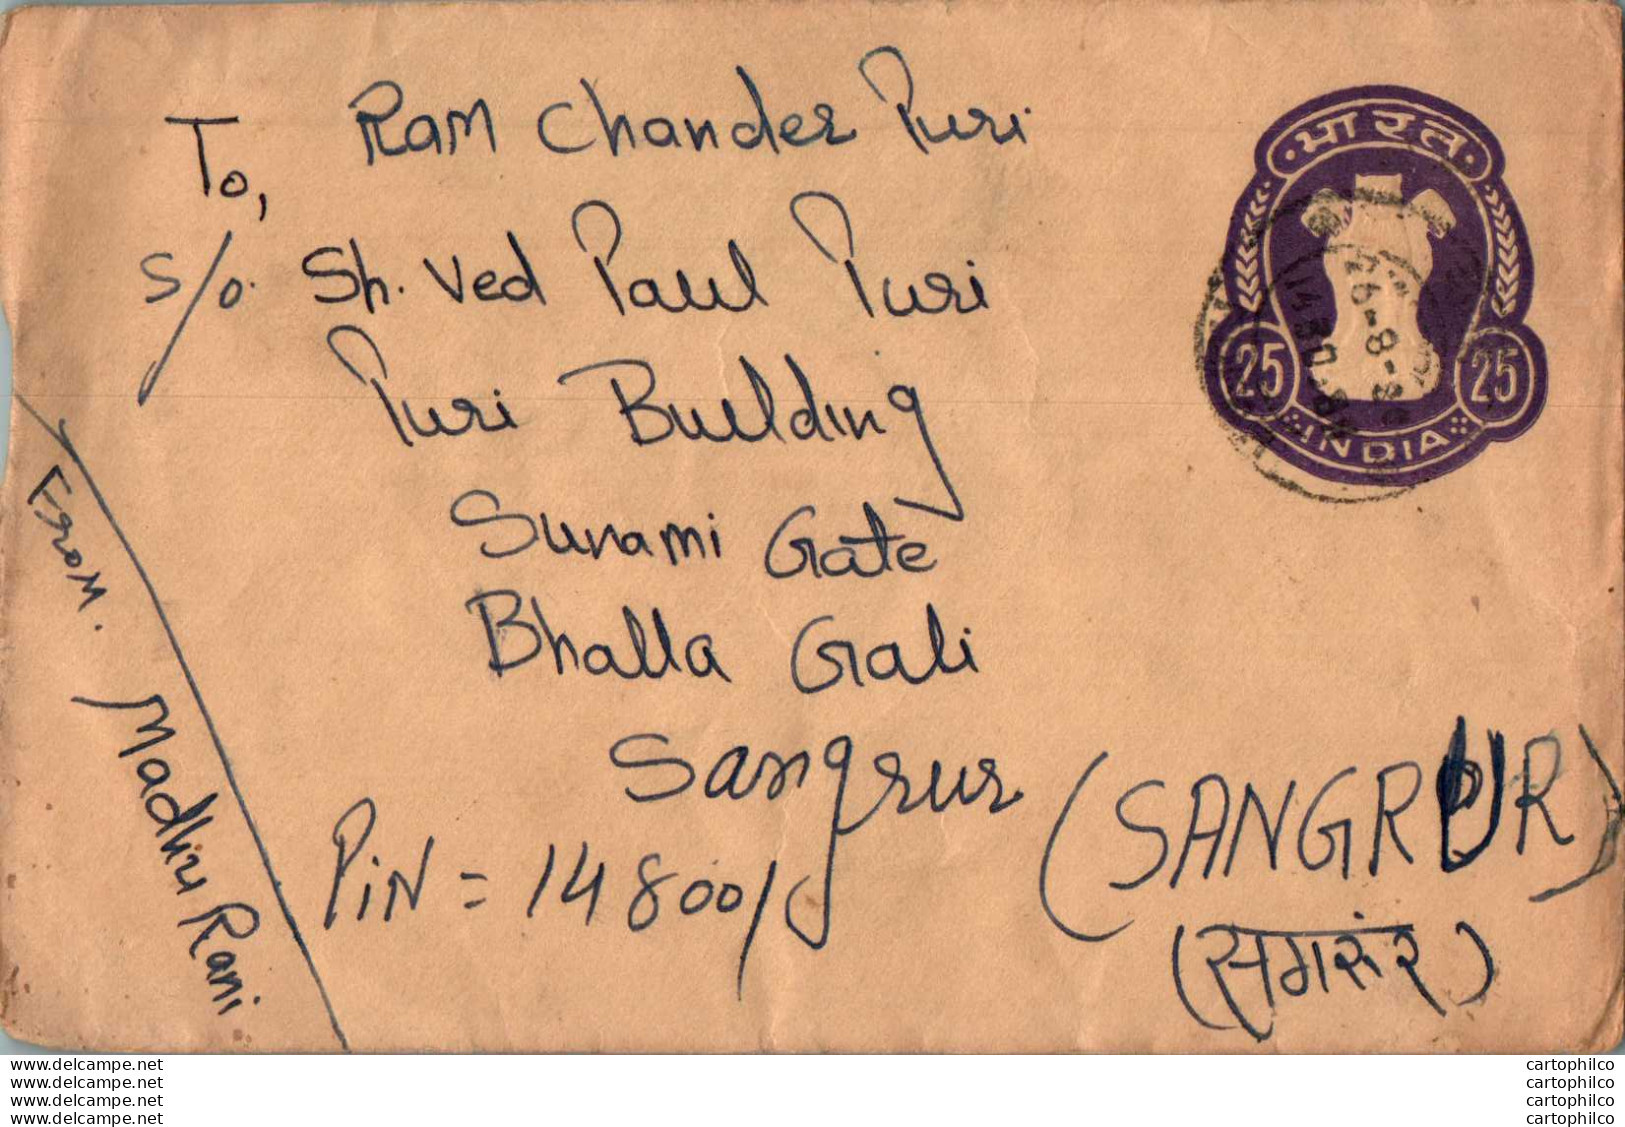 To,
Ram Chander Puri
S/o. Sh. Ved Paul Puri
Puri Building
Sunami Gate
Bhalla Gali
Sangrur
(SANGRUR)
(सगरूंर)
PiN = 148001
From.
Madhu Rani
भारत
25
25
INDIA
26-8-
14 30
www.delcampe.net
www.delcampe.net
www.delcampe.net
www.delcampe.net
cartophilco
cartophilco
cartophilco
cartophilco